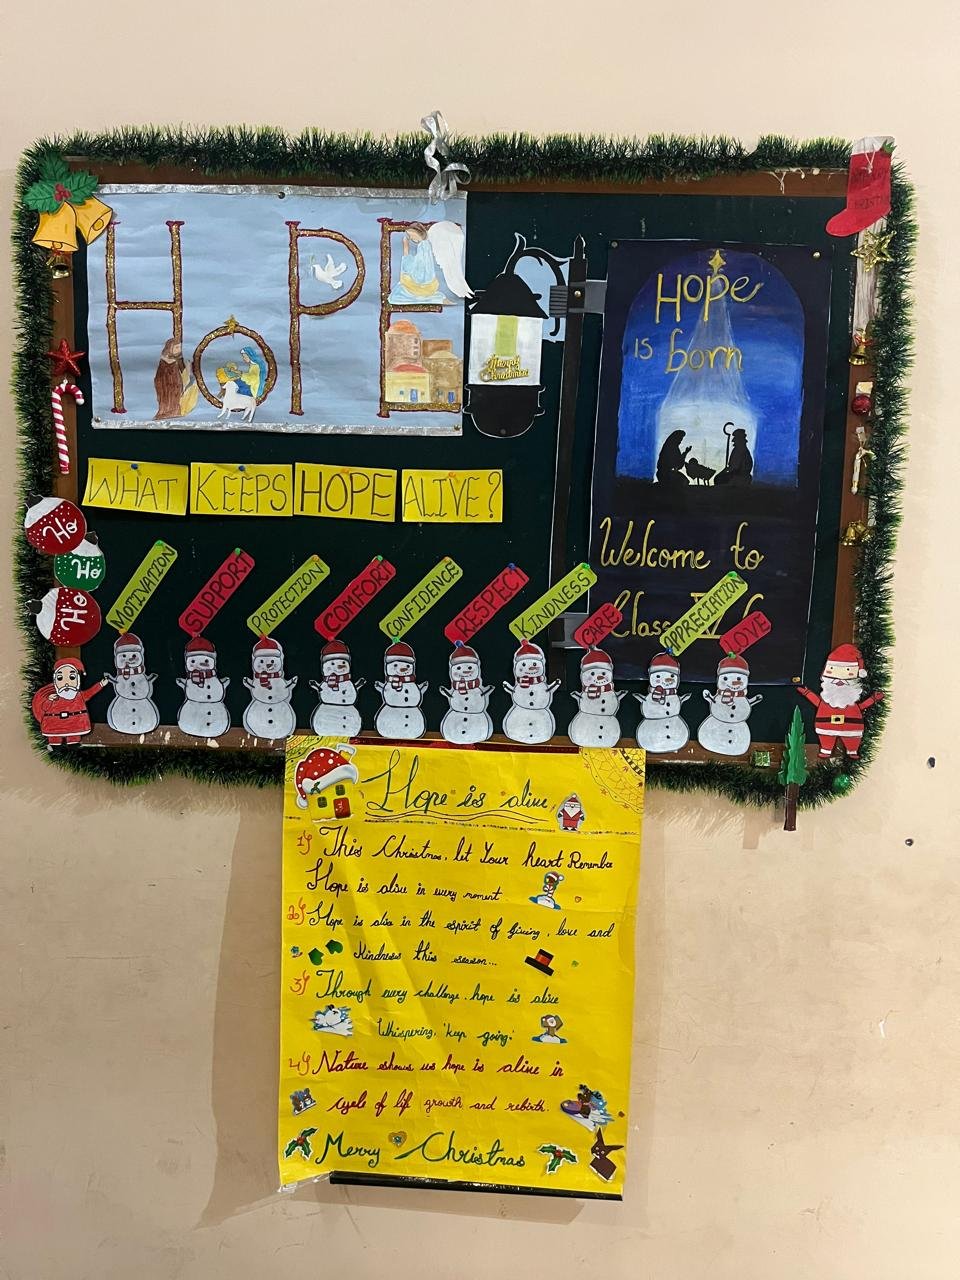 HOPE
Merry
Christmas
Hope
is born
Welcome to
Class
WHAT KEEPS HOPE ALIVE?
Ho
Ho
Ho
MOTIVATION
SUPPORT
PROTECTION
COMFORT
CONFIDENCE
RESPECT
KINDNESS
CARE
APPRECIATION
LOVE
Hope is alive
1) This Christmas, let Your heart Remember
Hope is alive in every moment
2) Hope is alive in the spirit of giving, love and
Kindness this season...
3) Through every challenge, hope is alive
Whispering, 'keep going!'
4) Nature shows us hope is alive in
cycle of life growth and rebirth.
Merry Christmas